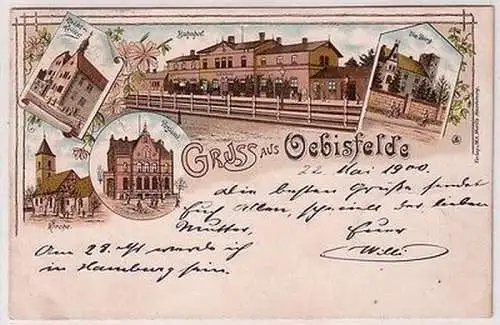 Bahnhof.
Die Burg
Kirche.
Gruss aus Oebisfelde
22 Mai 1900.
Die besten Grüße sendet
Euch Allen, speciell der lieben
Mutter, Euer
Willi
Am 28. werde ich
in Hamburg sein.